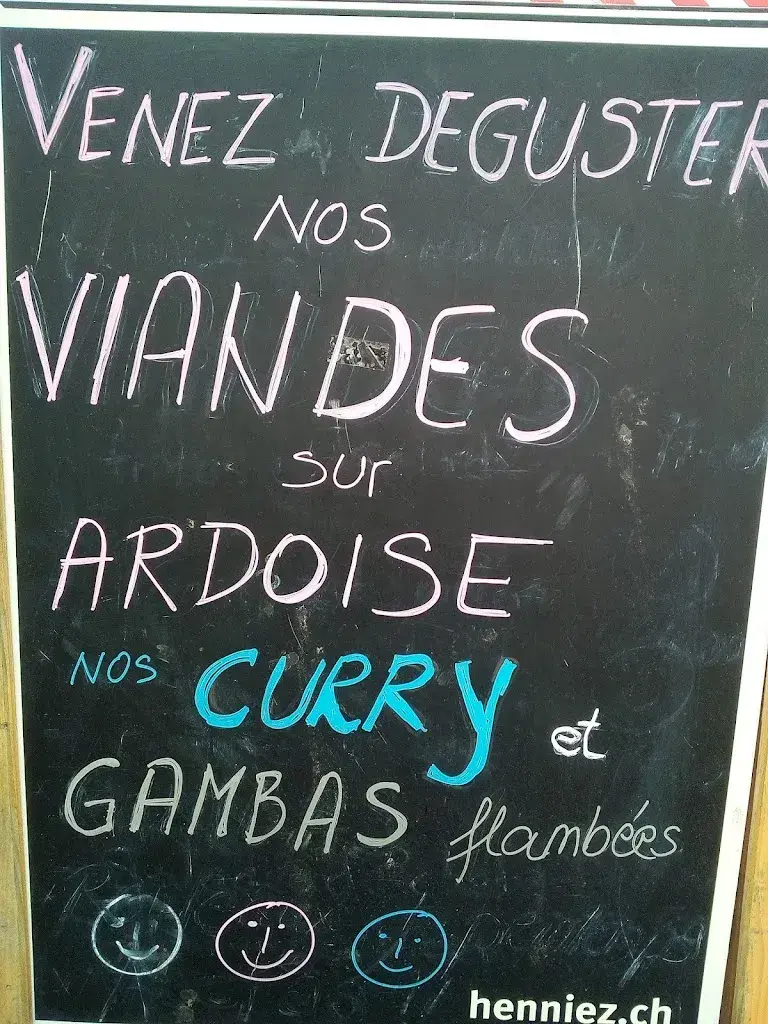 VENEZ DEGUSTER
NOS
VIANDES
sur
ARDOISE
NOS CURRY et
GAMBAS flambées
henniez.ch